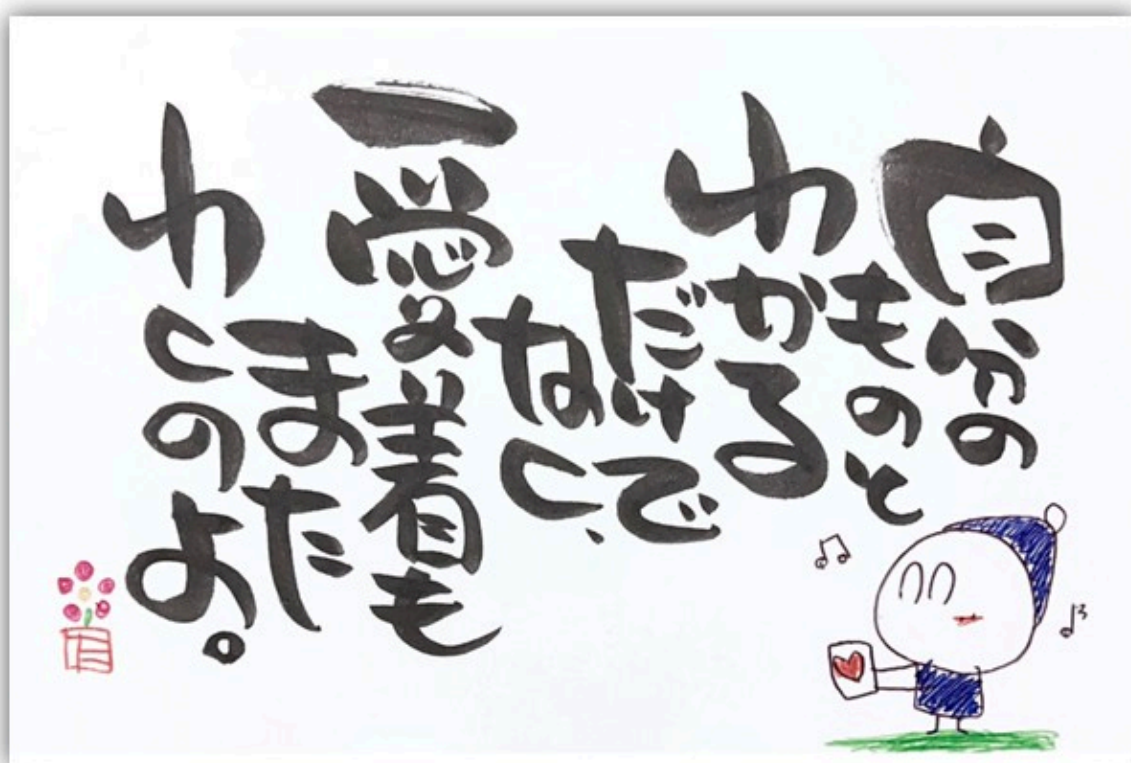 自分の
ものと
わかる
だけで
なく、
愛着も
また
わくのよ。